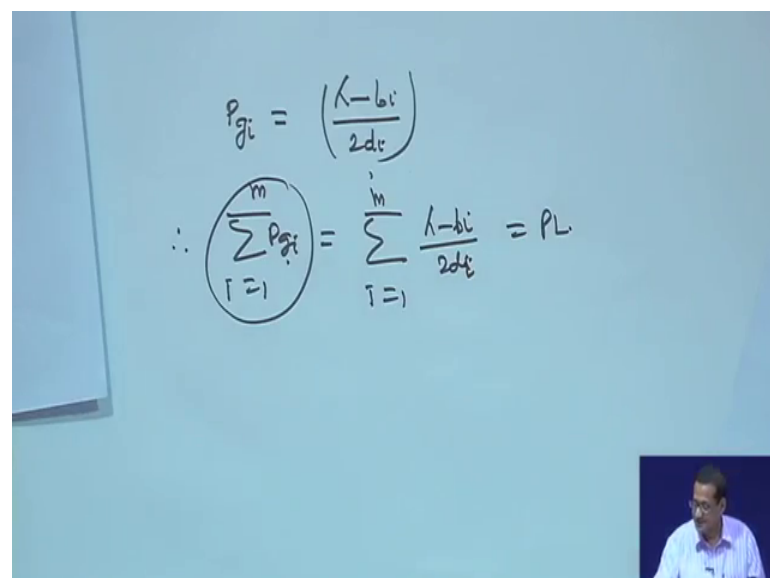 P_{gi} = (\frac{λ-bi}{2di})
∴ \sum_{i=1}^{m} P_{gi} = \sum_{i=1}^{m} \frac{λ-bi}{2di} = PL.